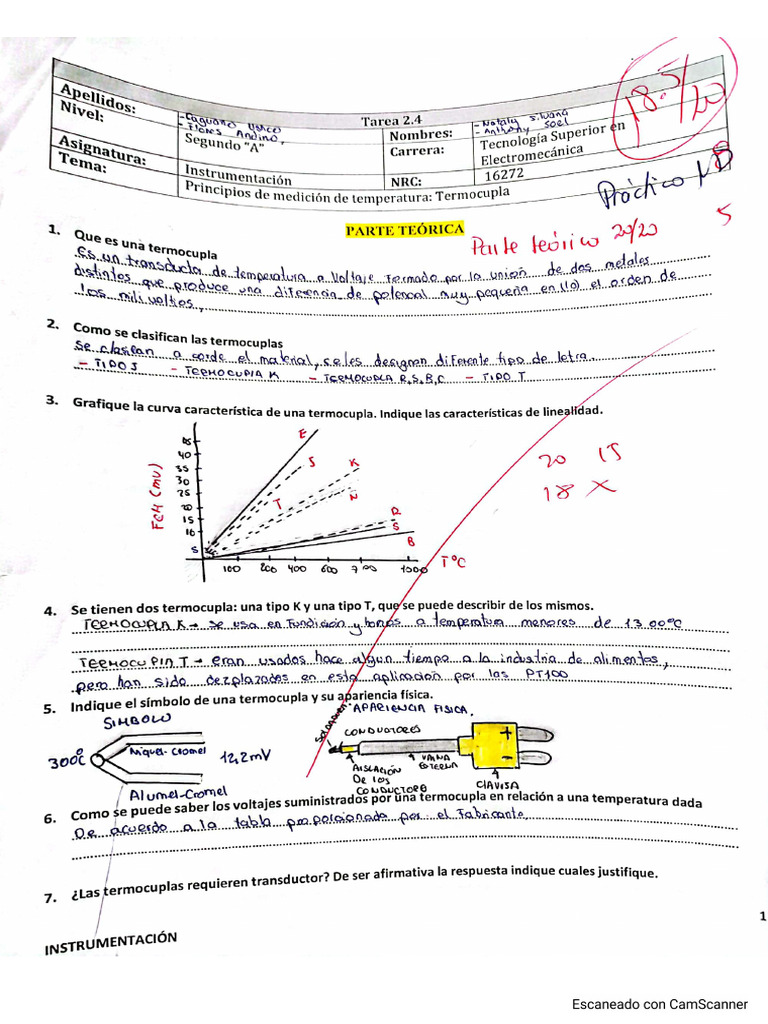 18.5/20
Tarea 2.4
Apellidos:
- Flores Andino,
Nombres:
- Nataly Silvana
- Anthony Joel
Nivel:
Segundo "A"
Carrera:
Tecnología Superior en
Electromecánica
Asignatura:
Instrumentación
NRC:
16272
Tema:
Principios de medición de temperatura: Termocupla
Práctico
PARTE TEÓRICA
Parte teórico 20/20
5
1. Que es una termocupla
Es un transductor de temperatura a voltaje formado por la unión de dos metales
distintos que produce una diferencia de potencial muy pequeña en el orden de
los mili voltios,
2. Como se clasifican las termocuplas
Se clasifican a corde el material, se les designan diferente tipo de letra.
- TIPO J - TERMOCUPLA K - TERMOCUPLA R, S, B, C - TIPO T
3. Grafique la curva característica de una termocupla. Indique las características de linealidad.
20 15
18 X
FEM (mV)
40
35
30
25
20
15
10
5
E
J
K
T
N
R
S
B
100 200 400 600 700 1000
T°C
4. Se tienen dos termocupla: una tipo K y una tipo T, que se puede describir de los mismos.
TERMOCUPLA K → se usa en fundición y hornos a temperatura menores de 1300°C
TERMOCUPLA T → eran usados hace algun tiempo a la industria de alimentos,
pero han sido dezplazados en esta aplicación por las PT100
5. Indique el símbolo de una termocupla y su apariencia física.
SIMBOLO
APARIENCIA FISICA.
300°C
Niquel-Cromel
12,2mV
Alumel-Cromel
CONDUCTORES
AISLACIÓN
DE LOS
CONDUCTORES
VAINA
EXTERNA
CLAVIJA
+
-
6. Como se puede saber los voltajes suministrados por una termocupla en relación a una temperatura dada
De acuerdo a la tabla proporcionada por el fabricante
7. ¿Las termocuplas requieren transductor? De ser afirmativa la respuesta indique cuales justifique.
1
INSTRUMENTACIÓN
Escaneado con CamScanner